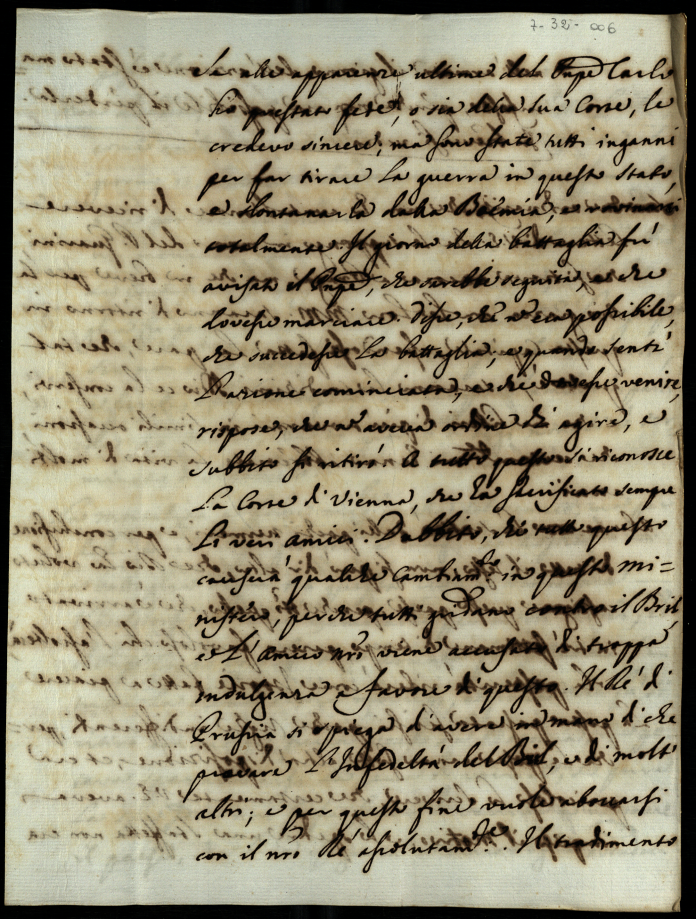 7-32-006
apparenze ultime della Carlo
ho prestato fede, o sia della sua Corte, le
credevo sincere, ma sono state tutti inganni
per far tirare la guerra in questo stato,
e slontanarla dalla Boemia, e rovinarci
totalmente. Il giorno della battaglia fù
avisato il, che sarebbe seguita, e che
dovesse marciare. Disse, che era possibile,
che succedesse la battaglia, e quando sentì
l'azione cominciata, e che dovesse venire,
rispose, che aveva ordine di agire, e
subbito si ritirò. A tutto questo si riconosce
La Corte di Vienna, che ha sacrificato sempre
li veri amici. Dubbito, che tutto questo
causerà qualche cambiam.to in questo mi=
nistero, perche tutti gridano contra il Bril,
e l'amico nr̃o viene accusato di troppa
indulgenza a favore di questo. Il Ré di
Prussia si spiega d'avere in mano di che
provare l'Infedeltà del Bril, e di molti
altri; e per questo fine vuole abboccarsi
con il nr̃o Ré assolutam.te. Il tradimento